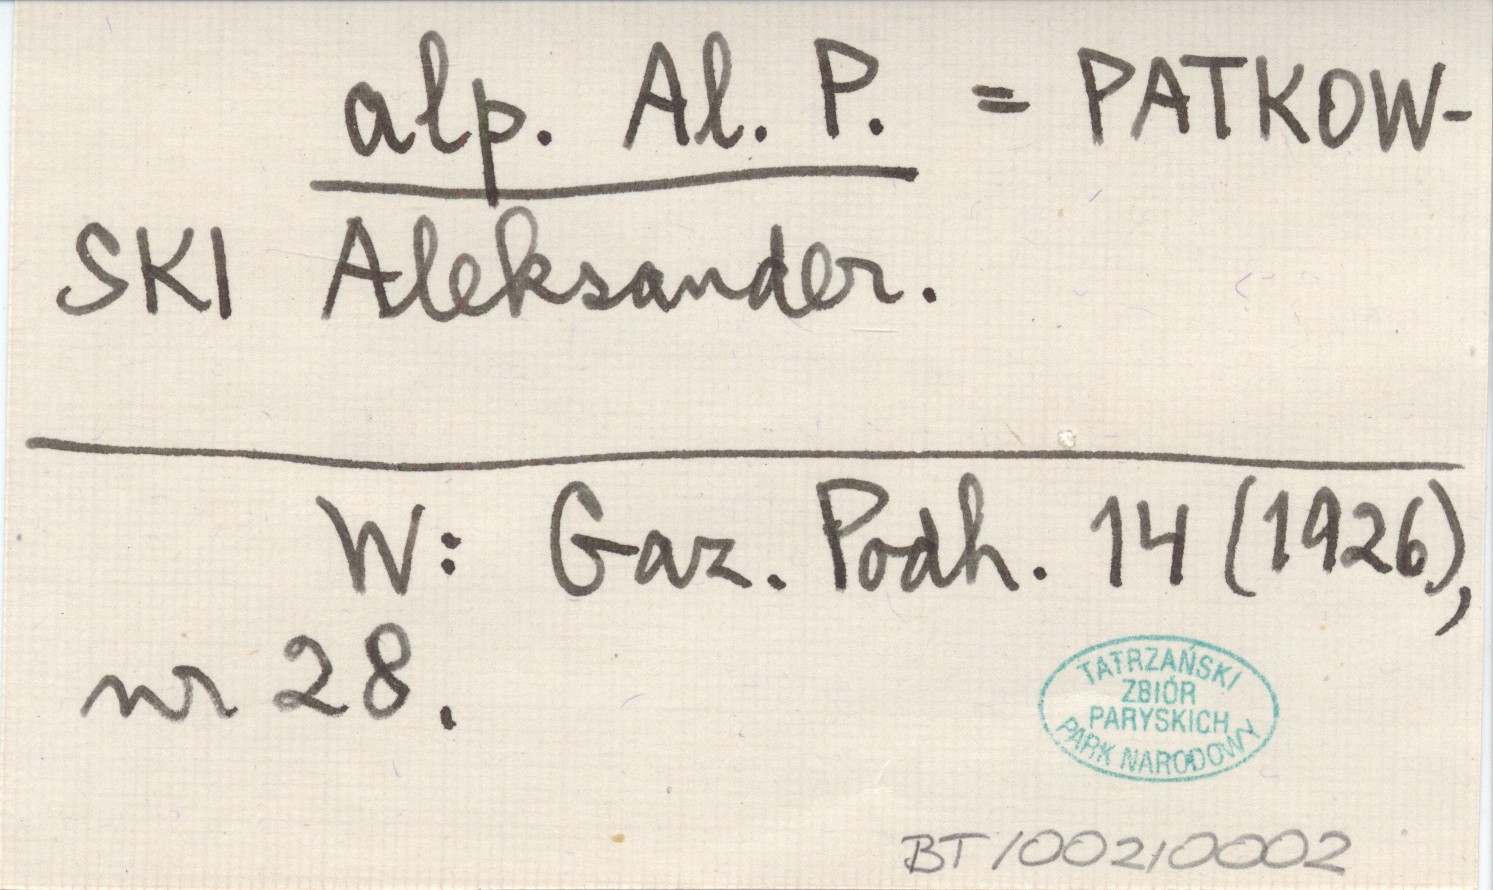 alp. Al. P. = PATKOW-
SKI Aleksander.
W: Gaz. Podh. 14 (1926),
nr 28.
TATRZAŃSKI
ZBIÓR
PARYSKICH
PARK NARODOWY
BT/002/0002